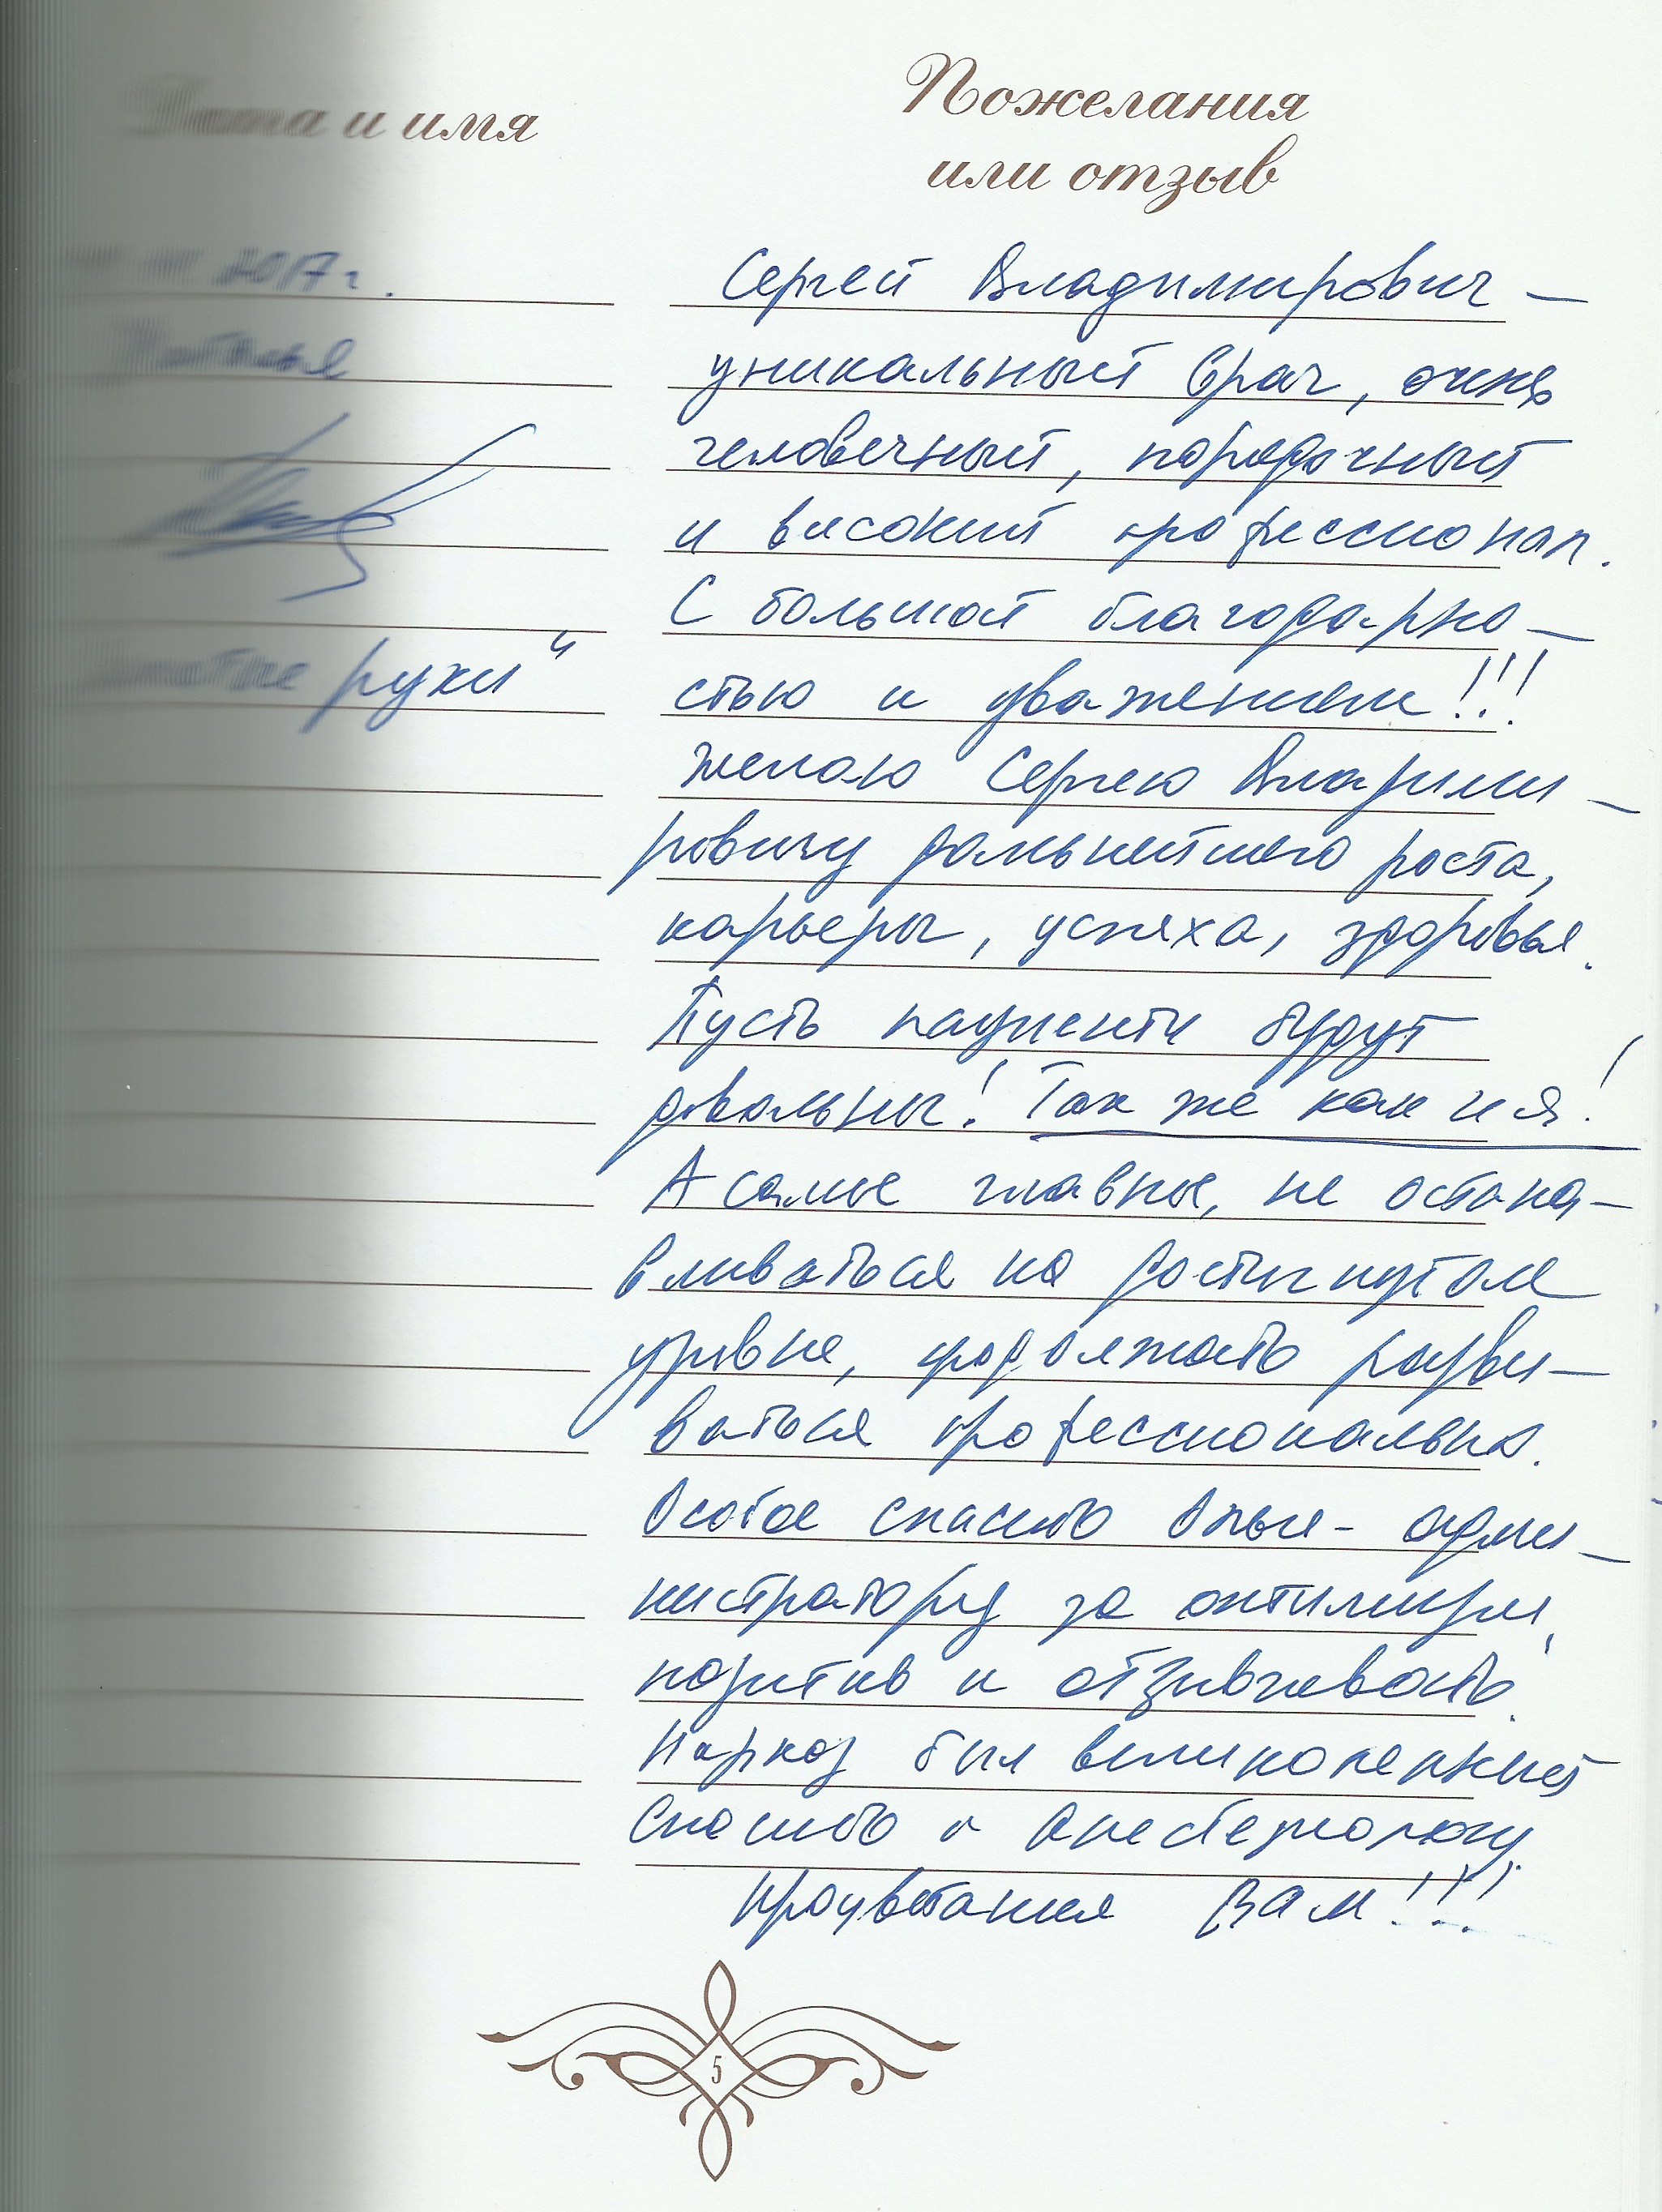 Дата и имя
Пожелания
или отзыв
2017 г.
Наталья
руки"
Сергей Владимирович –
уникальный врач, очень
человечный, порядочный
и высокий профессионал.
С большой благодарно-
стью и уважением!!!
Желаю Сергею Владими-
ровичу дальнейшего роста,
карьеры, успеха, здоровья.
Пусть пациенты будут
довольны! Так же как и я!
А самое главное, не остана-
вливаться на достигнутом
уровне, продолжать разви-
ваться профессионально.
Особое спасибо Ольге - адми-
нистратору за оптимизм,
позитив и отзывчивость.
Наркоз был великолепный
Спасибо и Анестезиологу.
Процветания Вам!!!
5